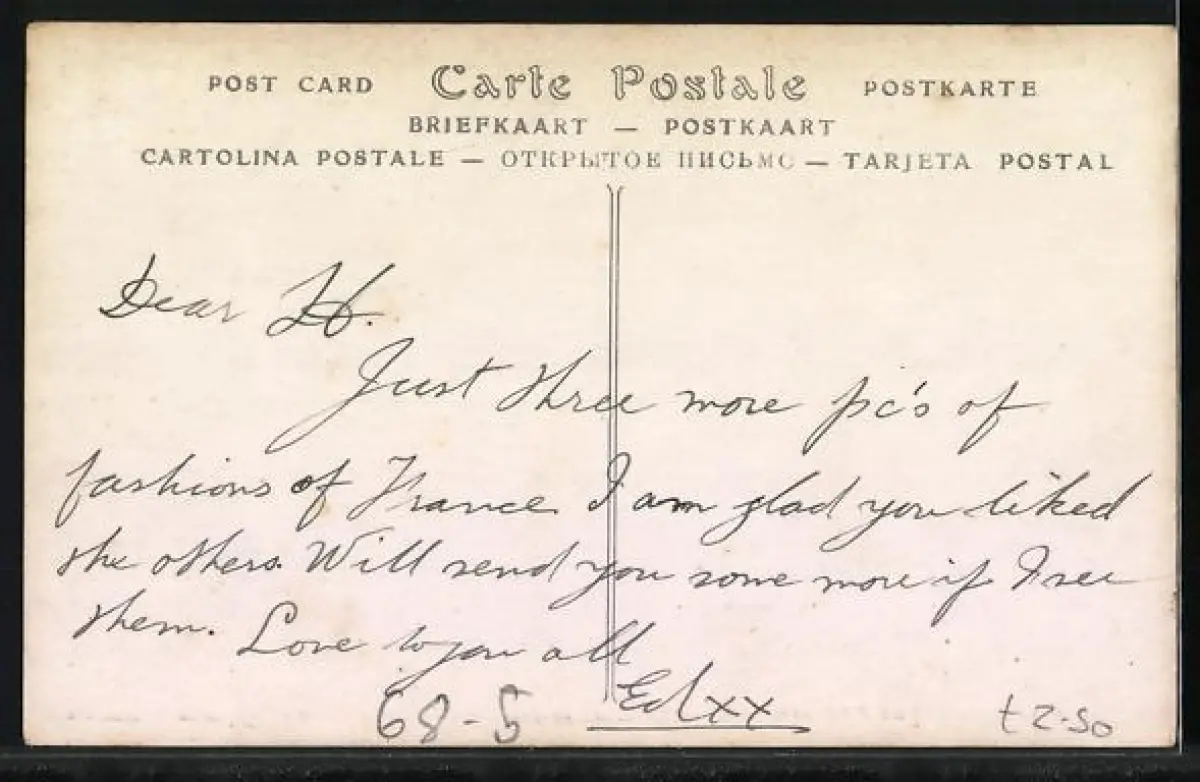 POST CARD Carte Postale POSTKARTE
BRIEFKAART — POSTKAART
CARTOLINA POSTALE — ОТКРЫТОЕ ПИСЬМО — TARJETA POSTAL
Dear H.
Just three more pc's of
fashions of France I am glad you liked
the others. Will send you some more if I see
them. Love to you all
Ed xx
68-5
t 2-50